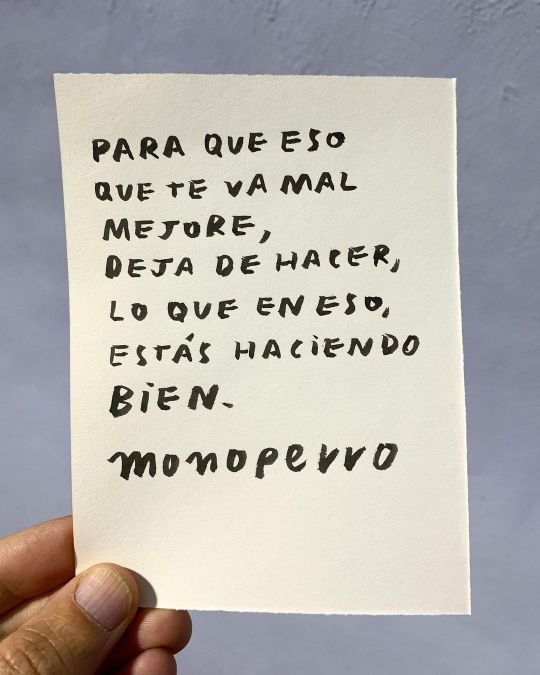 PARA QUE ESO
QUE TE VA MAL
MEJORE,
DEJA DE HACER,
LO QUE EN ESO,
ESTÁS HACIENDO
BIEN.
monoperro